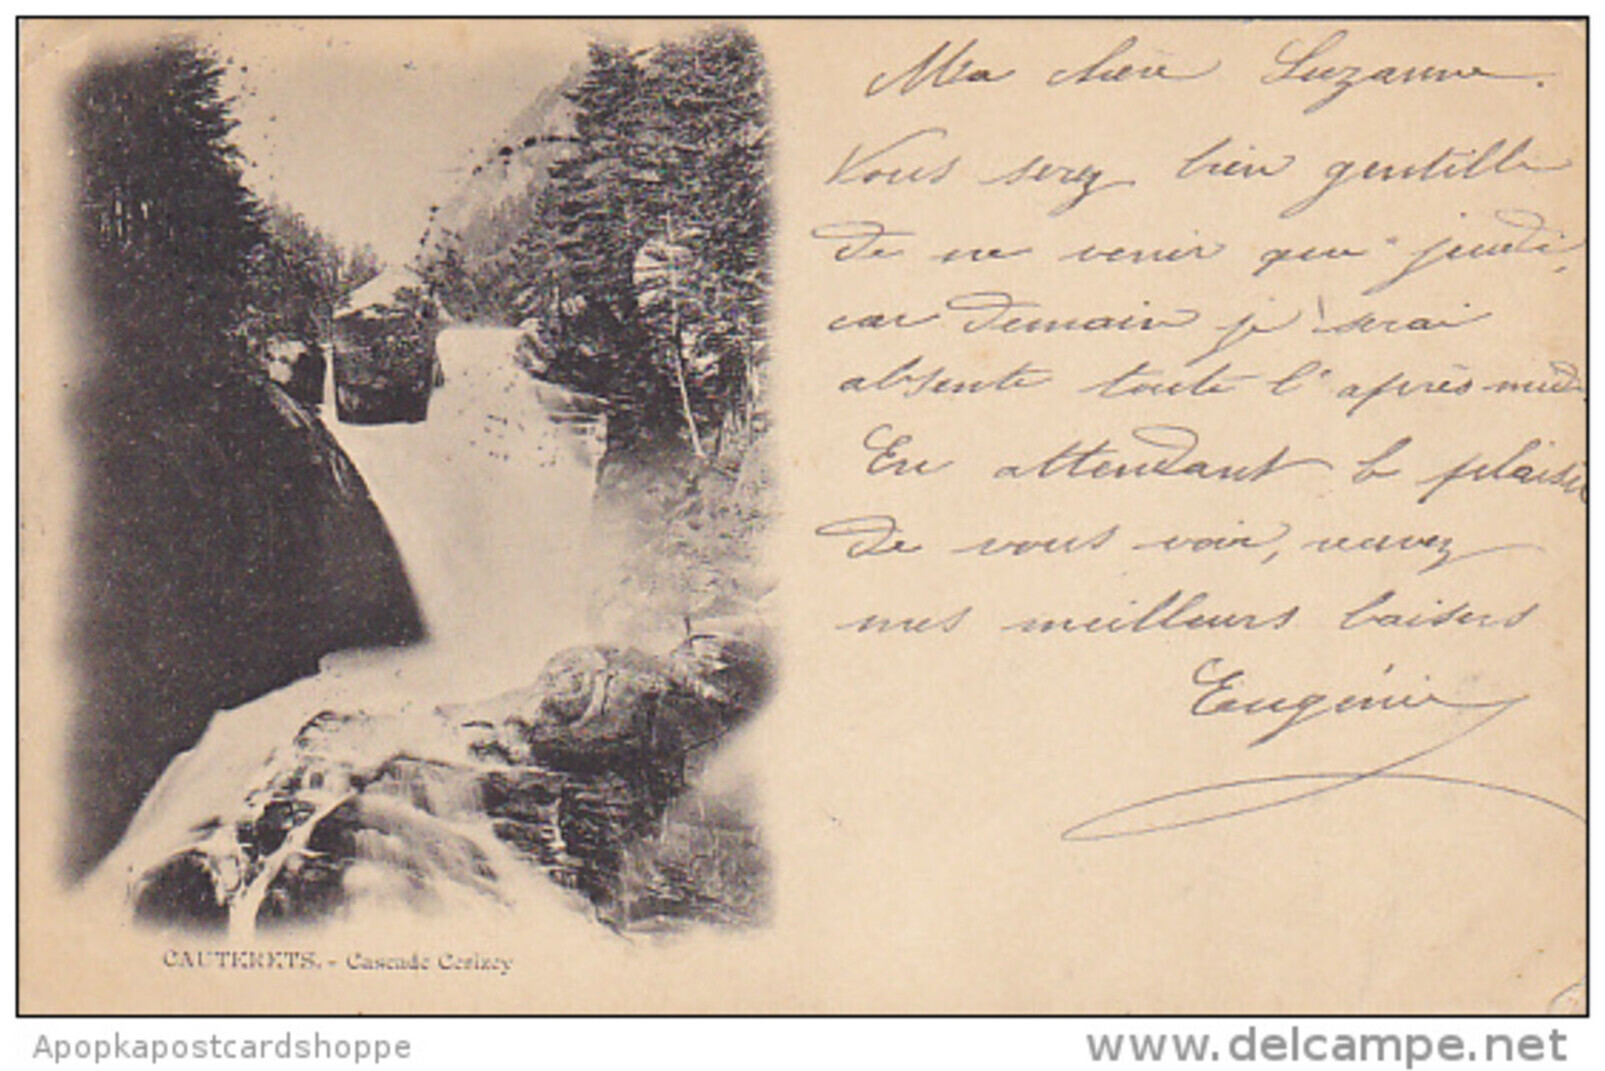 Ma chère Suzanne.
Vous serez bien gentille
de ne venir que jeudi,
car demain je serai
absente toute l'après-midi
En attendant le plaisir
de vous voir, recevez
mes meilleurs baisers
Eugénie
CAUTERETS. - Cascade Cerizey
Apopkapostcardshoppe
www.delcampe.net